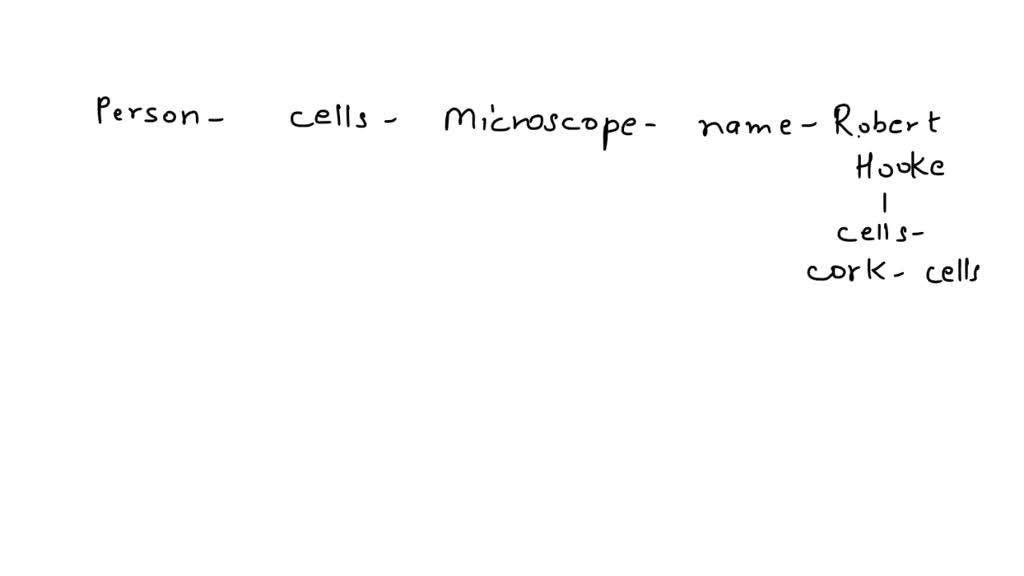 Person - cells - Microscope - name - Robert
Hooke
|
cells -
cork - cells